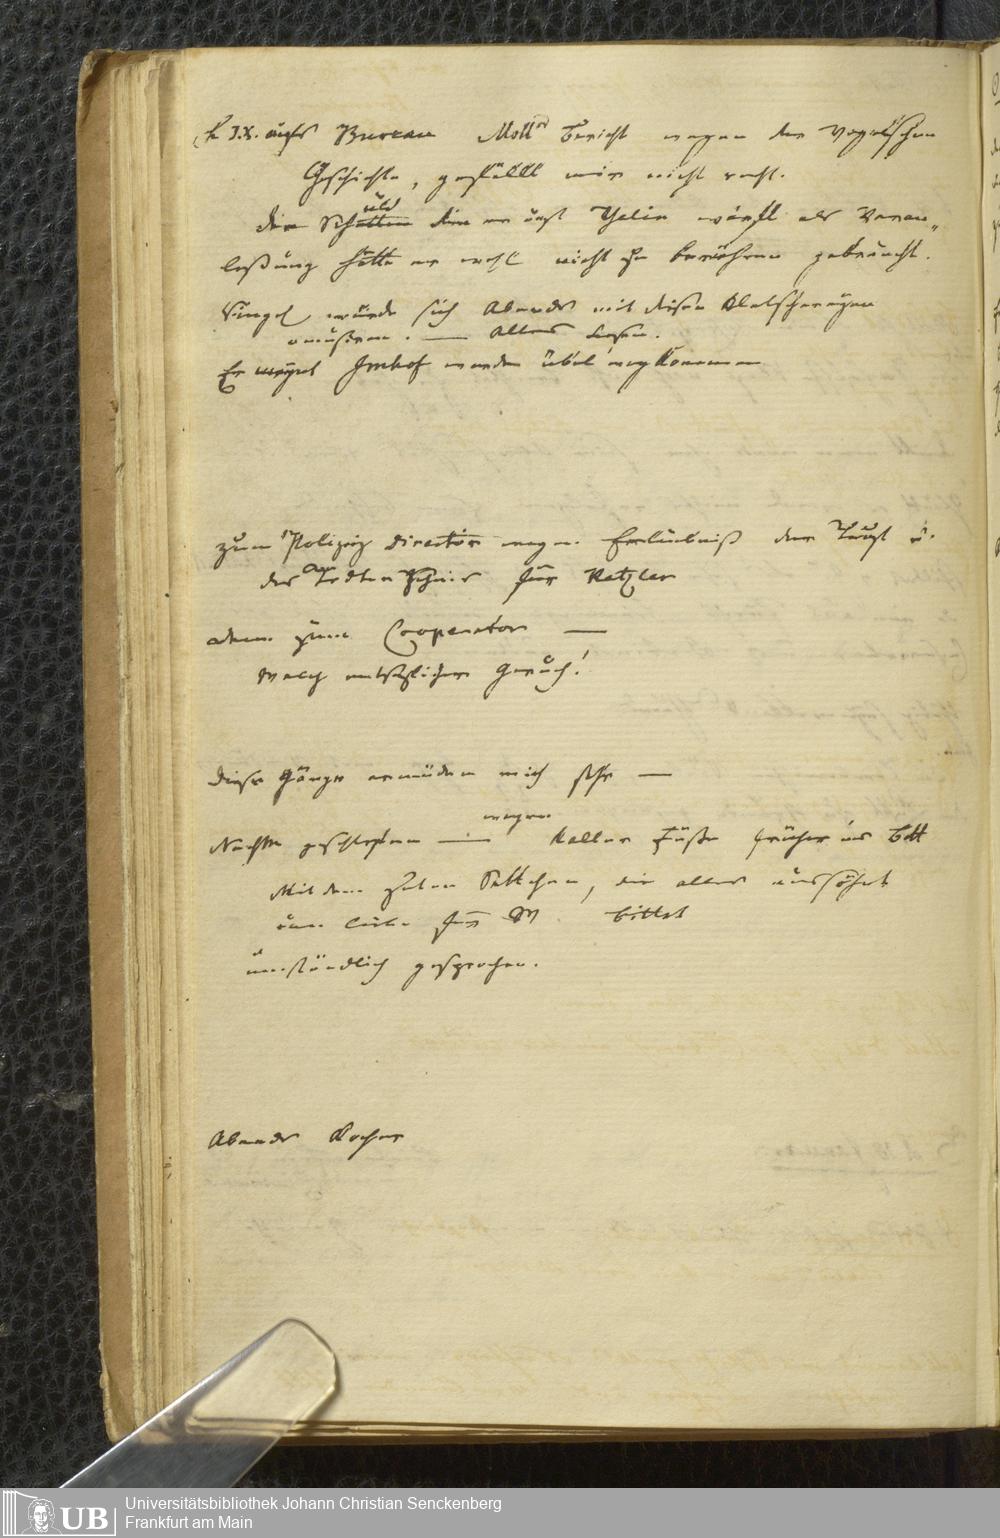 h I.X. aufs Bureau Molls Bericht wegen der Vogelschen
Geschichte, gefällt mir nicht recht.
die Schatten die er auf Thelin wirft als Veran„
schuld
laßung hätte er wohl nicht zu berühren gebraucht.
würde sich Abends mit diesen Klatschereyen
amüsiren. — Alles lesen.
Er Imhof werden übel wegkommen
zum Polizey Director wegen Erlaubniß der Taufe u.
des Todtenscheins für Ketzler
dann zum Cooperator —
Welch entsetzlicher Geruch!
diese Gänge ermüden mich sehr —
Nachts geschlafen — wegen kalter Füße früher ins Bett
Mit dem guten Settchen, die alles aussöhnt
um bittet
umständlich gesprochen.
Abends Kocher
Universitätsbibliothek Johann Christian Senckenberg
Frankfurt am Main
UB